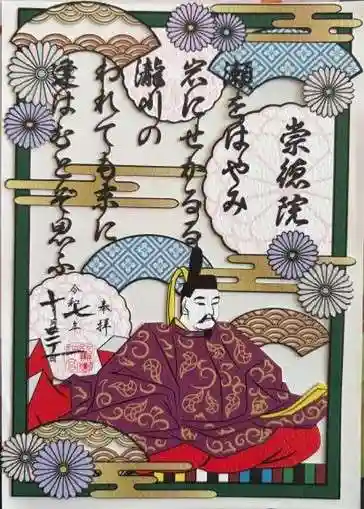 崇徳院
瀬をはやみ
岩にせかるる
瀧川の
われても末に
逢はむとぞ思ふ
奉拝
令和七年